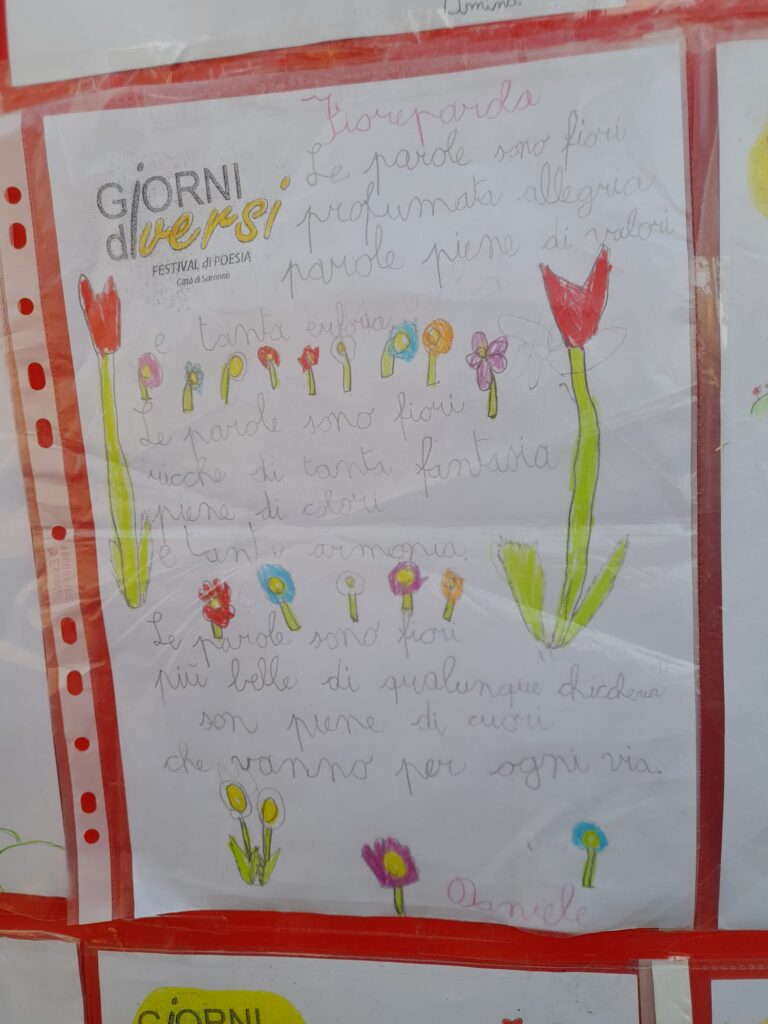 Amina
Fioreparola
GiORNI
diversi
FESTIVAL di POESIA
Città di Saronno
Le parole sono fiori
profumata allegria
parole piene di valori
e tanta euforia.
Le parole sono fiori
ricche di tanta fantasia
piene di colori
e tanta armonia.
Le parole sono fiori
più belle di qualunque chiccheria
son piene di cuori
che vanno per ogni via.
Daniele
GiORNI